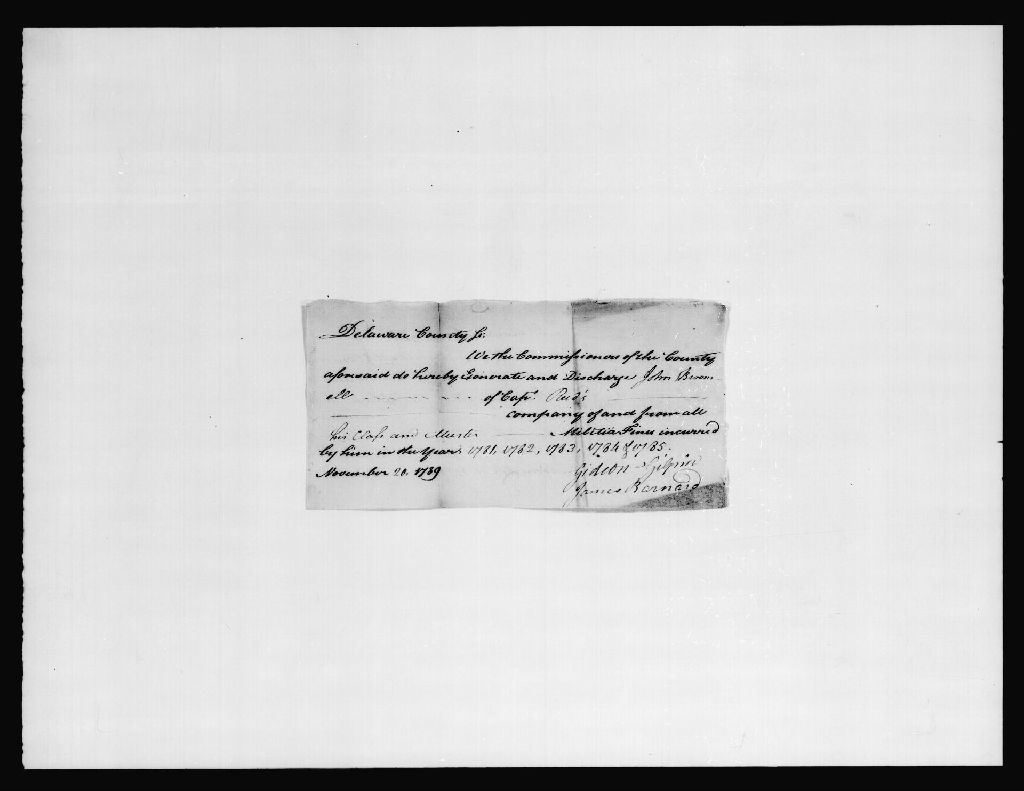 Delaware County Ss.
We the Commissioners of the County
aforesaid do hereby Exonerate and Discharge John
of Capt.
company of and from all
his Class and Muster Militia Fines incurred
by him in the Years 1781, 1782, 1783, 1784 & 1785.
November 28, 1789
Gideon Gilpin
James Barnard